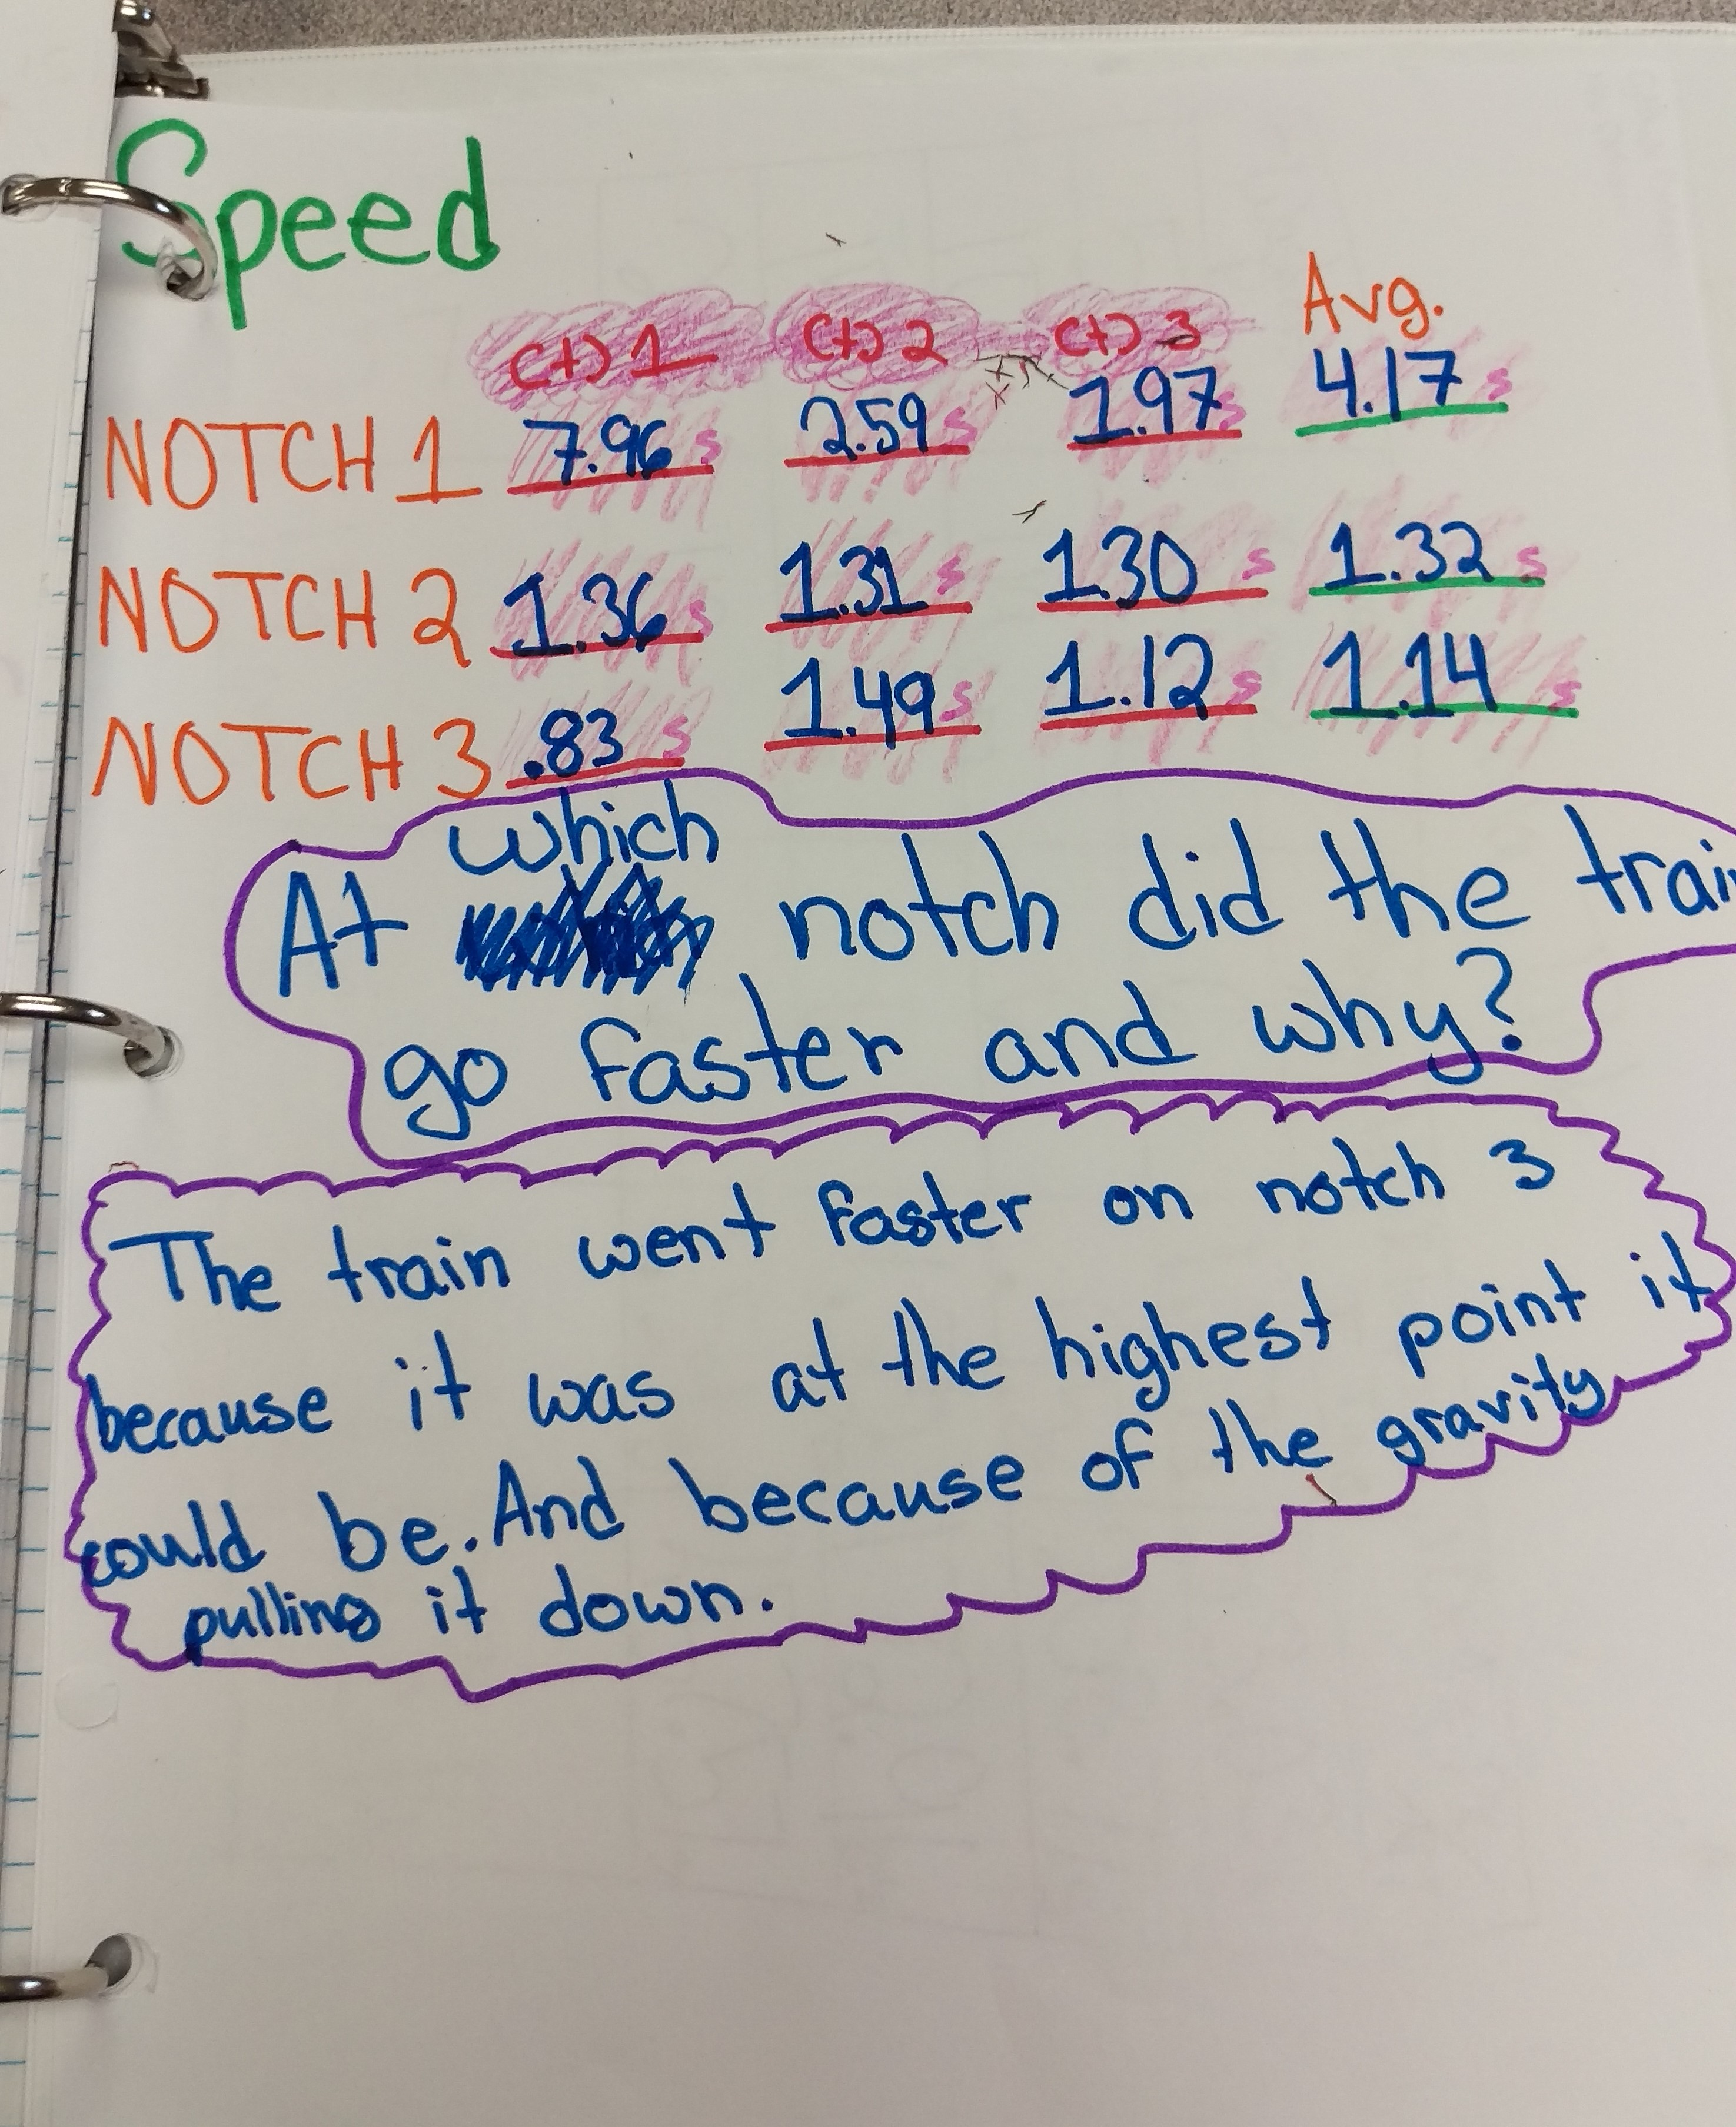 Speed
(t) 1 (t) 2 (t) 3 Avg.
NOTCH 1 7.96 s 2.59 s 1.97 s 4.17 s
NOTCH 2 1.36 s 1.31 s 1.30 s 1.32 s
NOTCH 3 .83 s 1.49 s 1.12 s 1.14 s
At which notch did the train
go faster and why?
The train went faster on notch 3
because it was at the highest point it
could be. And because of the gravity
pulling it down.